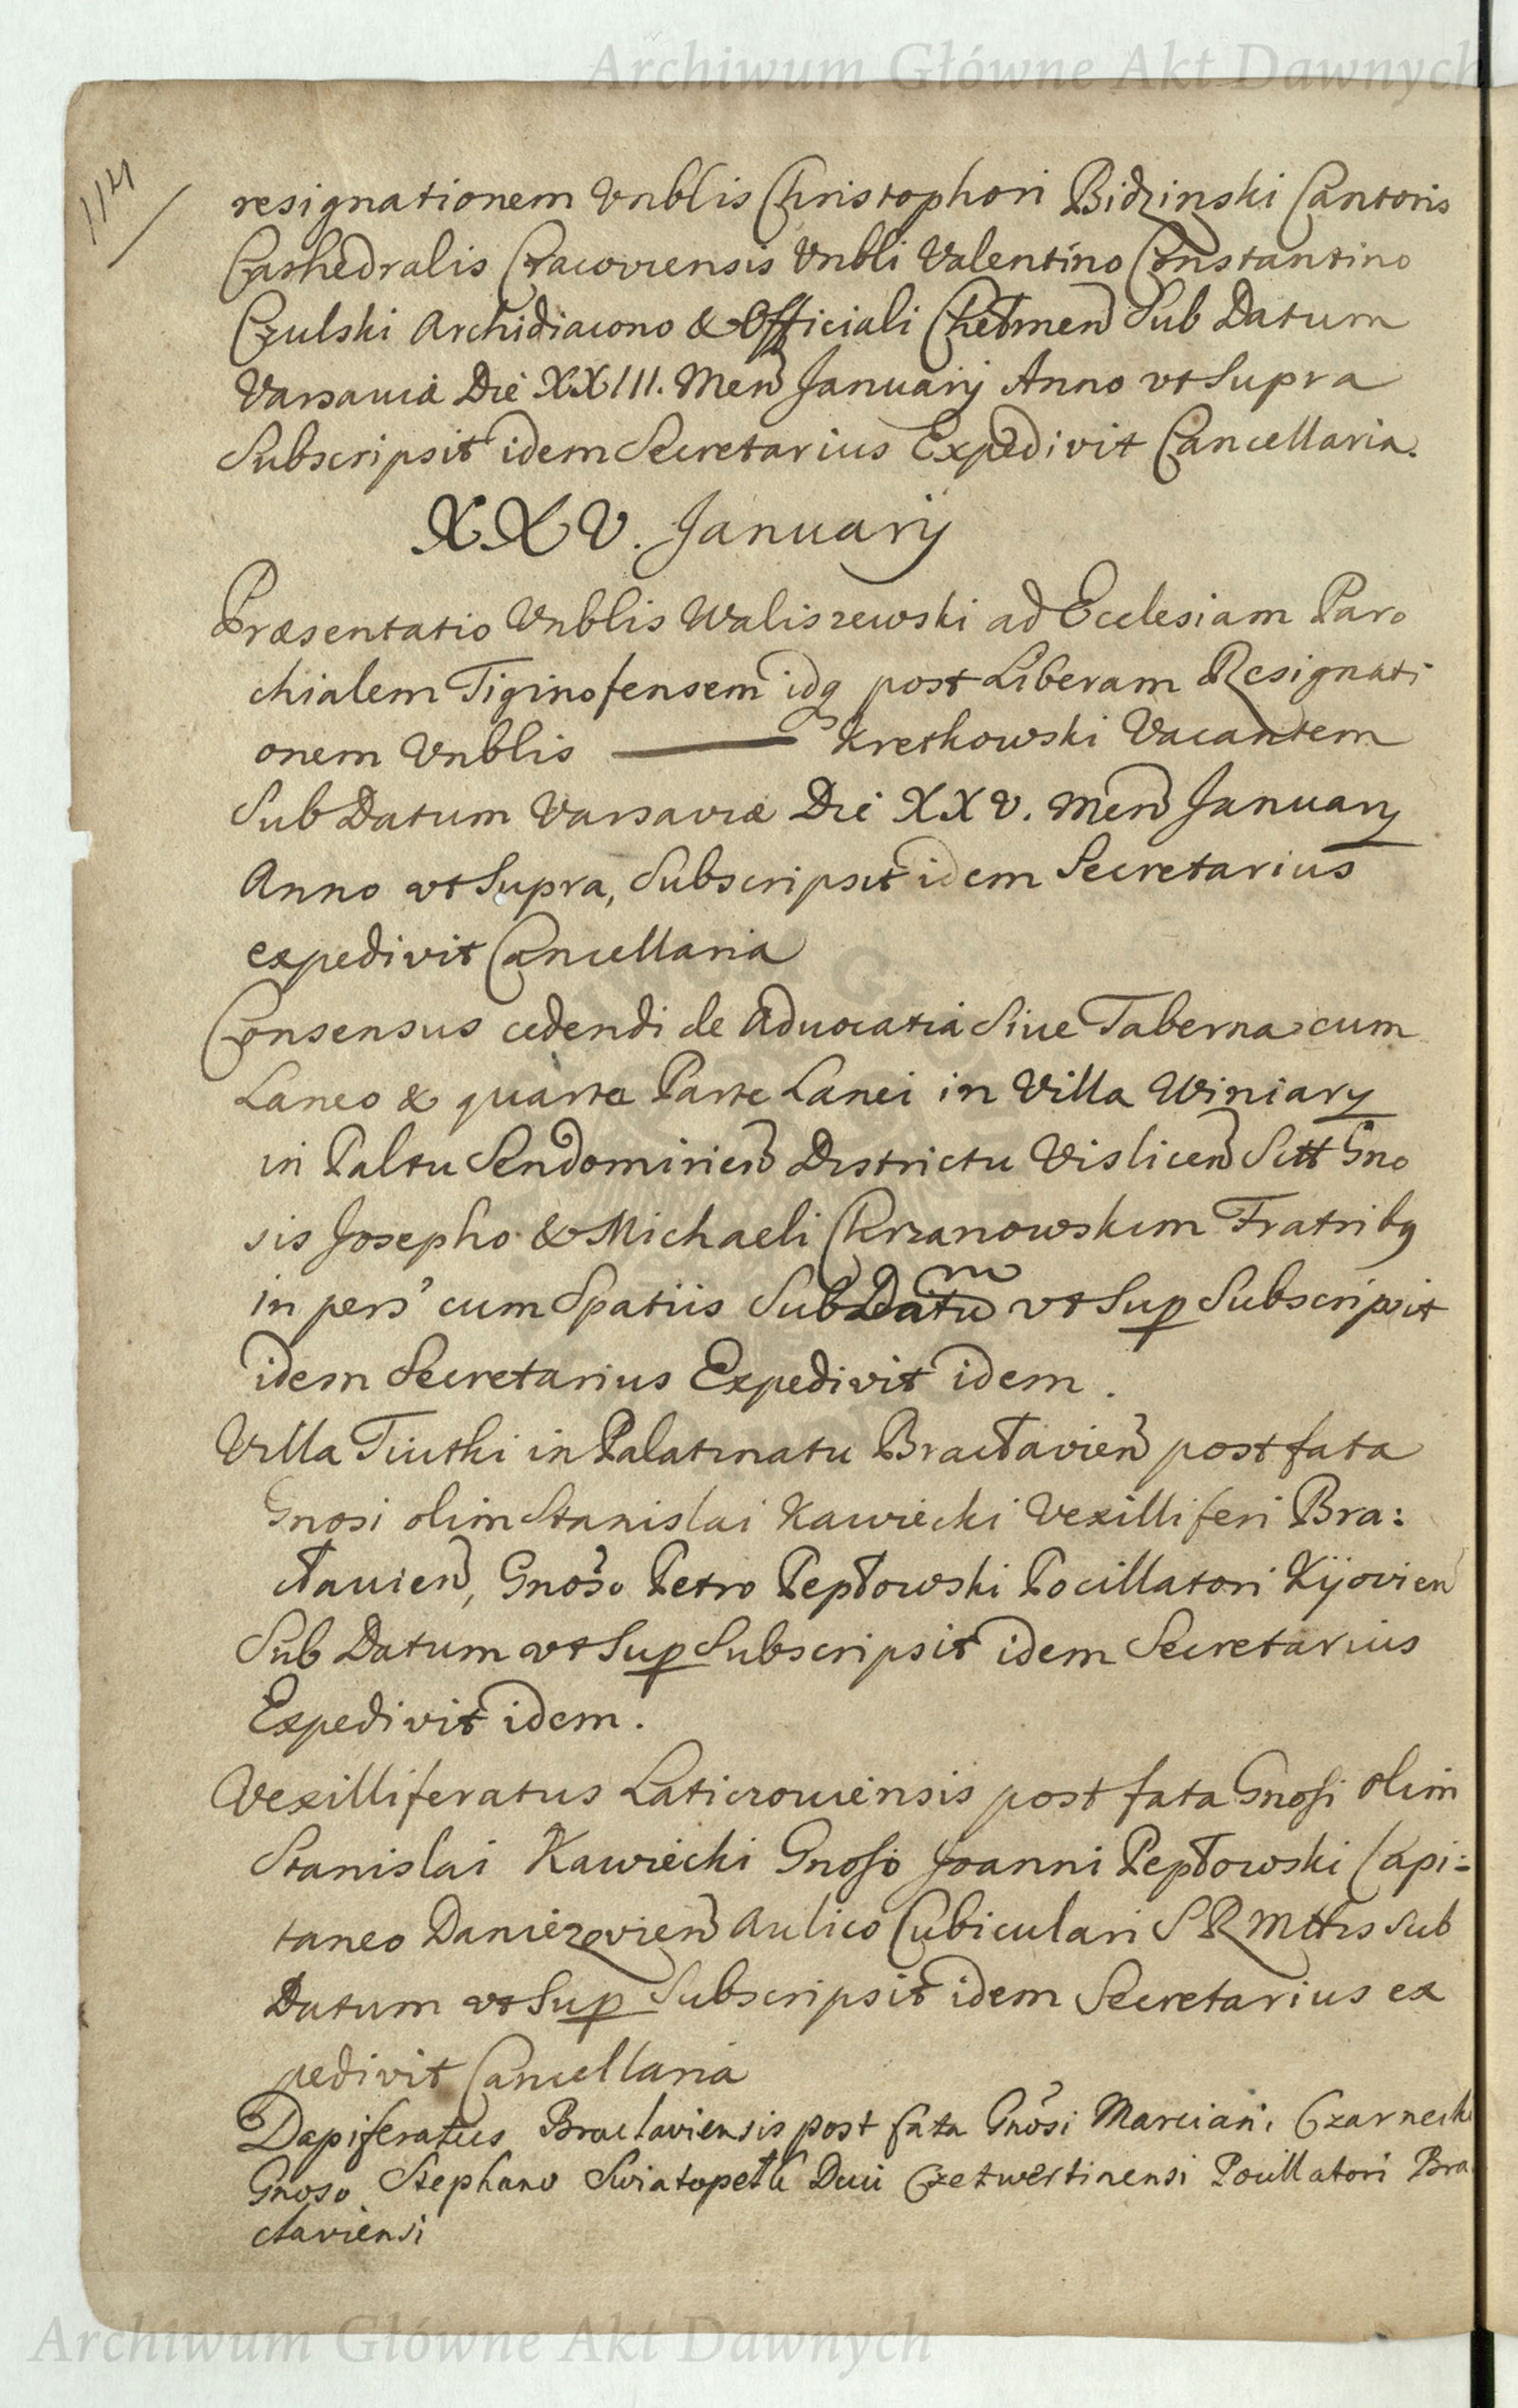 Archiwum Główne Akt Dawnych
114
resignationem Vnblis Christophori Bidzinski Cantoris
Cathedralis Cracoviensis Vnbli Valentino Constantino
Czulski Archidiacono & Officiali Chełmen Sub Datum
Varsauia Die XXIII. Men Januarij Anno vt Supra
Subscripsit idem Secretarius Expedivit Cancellaria.
XXV. Januarij
Præsentatio Vnblis Waliszewski ad Ecclesiam Paro
chialem Tiginofensem idq post Liberam Resignati
onem Vnblis ——— Kretkowski Vacantem
Sub Datum Varsaviæ Die XXV. Men January
Anno vt Supra, Subscripsit idem Secretarius
expedivit Cancellaria
Consensus cedendi de Aduocatia Siue Taberna cum
Laneo & quarta Parte Lanei in Villa Winiary
in Paltu Sendomirien Districtu Vislicen Sitt Gno
sis Josepho & Michaeli Chrzanowskim Fratribq
in pers cum Spatiis Sub Datum vt Sup Subscripsit
idem Secretarius Expedivit idem.
Villa Tiutki in Palatinatu Bracłavien post fata
Gnosi olim Stanislai Kawiecki Vexilliferi Bra:
cłauien, Gnoso Petro Pepłowski Pocillatori Kijovien
Sub Datum vt Sup Subscripsit idem Secretarius
Expedivit idem.
Vexilliferatus Laticzouiensis post fata Gnosi olim
Stanislai Kawiecki Gnoso Joanni Pepłowski Capi:
taneo Daniezovien Aulico Cubiculari S R Mttis sub
Datum vt Sup Subscripsit idem Secretarius ex
pedivit Cancellaria
Dapiferatus Braclaviensis post fata Gnosi Marciani Czarnecki
Gnoso Stephano Swiatopełk Duci Czetwertinensi Pocillatori Bra
claviensi
Archiwum Główne Akt Dawnych